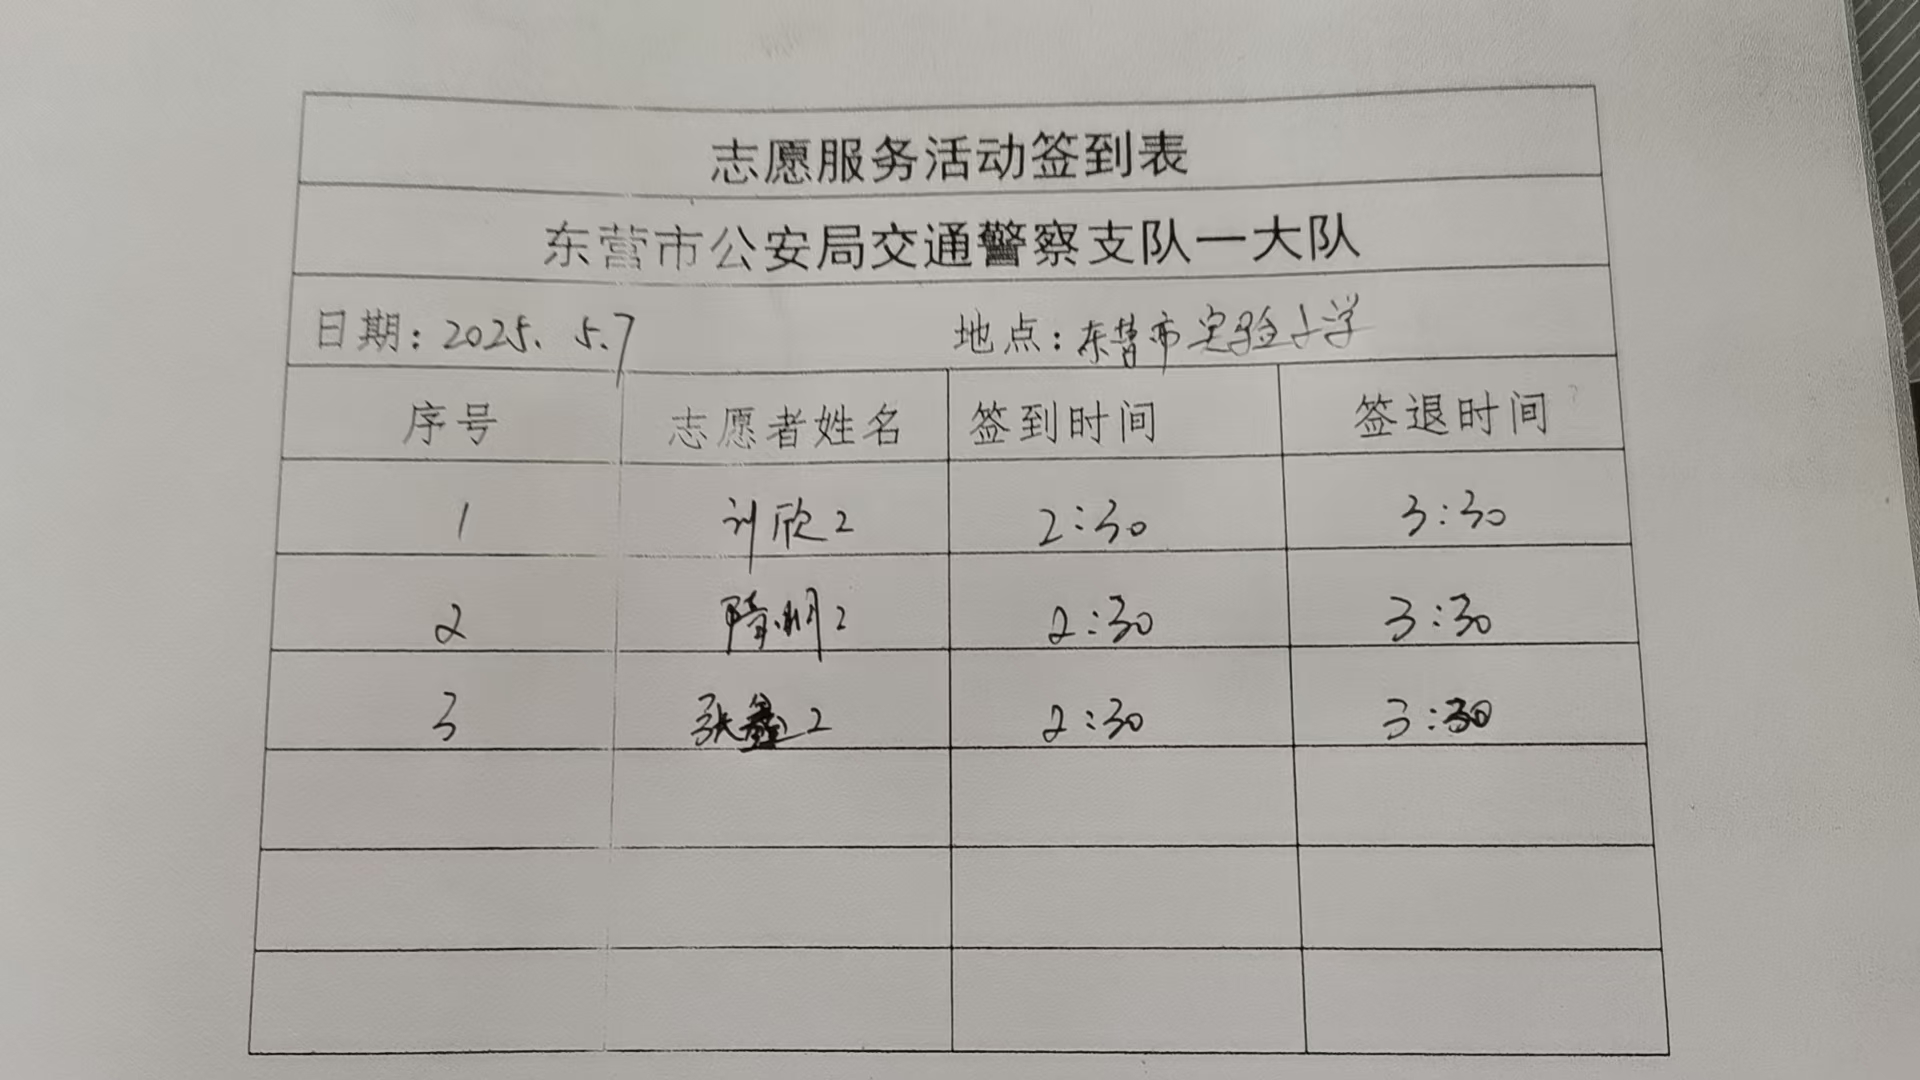 志愿服务活动签到表
东营市公安局交通警察支队一大队
日期：2025.5.7 地点：东营市实验小学
序号 志愿者姓名 签到时间 签退时间
1 刘欣2 2:30 3:30
2 隋明2 2:30 3:30
3 张鑫2 2:30 3:30